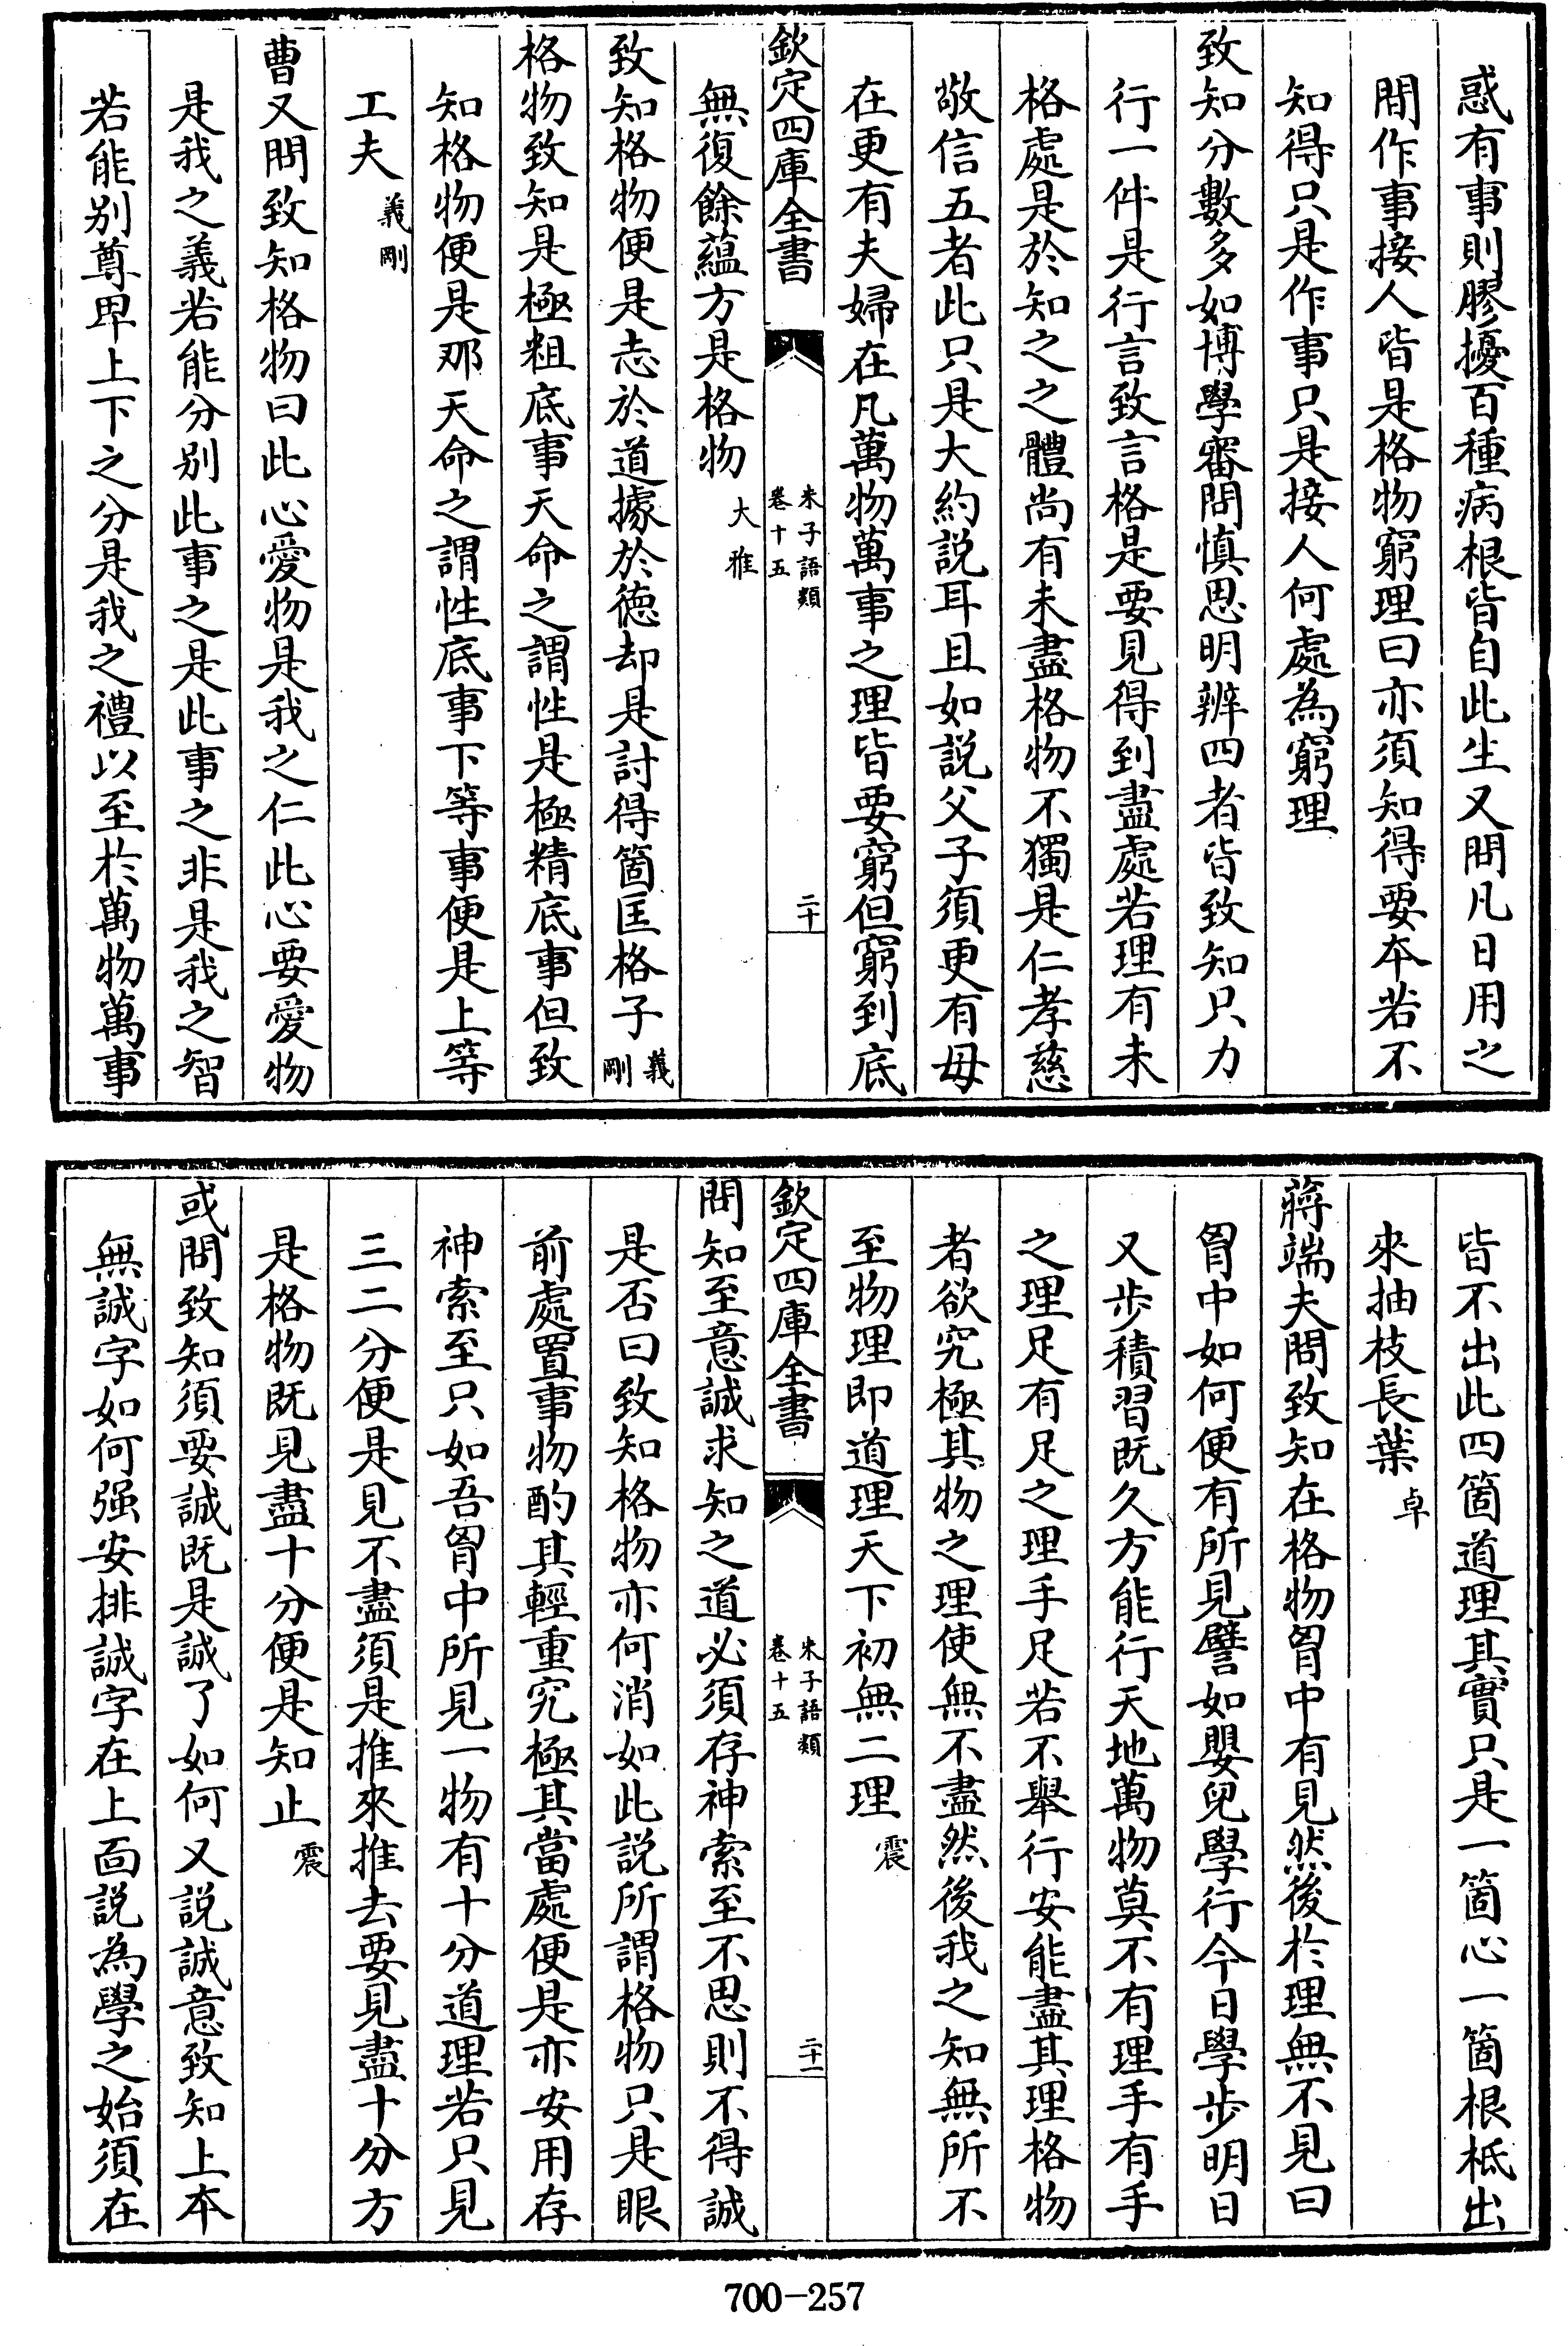 惑有事則膠擾百種病根皆自此生又問凡日用之
間作事接人皆是格物窮理曰亦須知得要本若不
知得只是作事只是接人何處為窮理
致知分數多如博學審問慎思明辨四者皆致知只力
行一件是行言致言格是要見得到盡處若理有未
格處是於知之之體尚有未盡格物不獨是仁孝慈
敬信五者此只是大約説耳且如説父子須更有母
在更有夫婦在凡萬物萬事之理皆要窮但窮到底
欽定四庫全書
朱子語類
卷十五
二十
無復餘藴方是格物 大雅
致知格物便是志於道據於徳却是討得箇匡格子 義剛
格物致知是極粗底事天命之謂性是極精底事但致
知格物便是那天命之謂性底事下等事便是上等
工夫 義剛
曹又問致知格物曰此心愛物是我之仁此心要愛物
是我之義若能分别此事之是此事之非是我之智
若能别尊卑上下之分是我之禮以至於萬物萬事
皆不出此四箇道理其實只是一箇心一箇根柢出
來抽枝長葉 卓
蔣端夫問致知在格物胷中有見然後於理無不見曰
胷中如何便有所見譬如嬰兒學行今日學步明日
又步積習既久方能行天地萬物莫不有理手有手
之理足有足之理手足若不舉行安能盡其理格物
者欲究極其物之理使無不盡然後我之知無所不
至物理即道理天下初無二理 震
欽定四庫全書
朱子語類
卷十五
二十一
問知至意誠求知之道必須存神索至不思則不得誠
是否曰致知格物亦何消如此説所謂格物只是眼
前處置事物酌其輕重究極其當處便是亦安用存
神索至只如吾胷中所見一物有十分道理若只見
三二分便是見不盡須是推來推去要見盡十分方
是格物既見盡十分便是知止 震
或問致知須要誠既是誠了如何又説誠意致知上本
無誠字如何强安排誠字在上面説為學之始須在
700-257